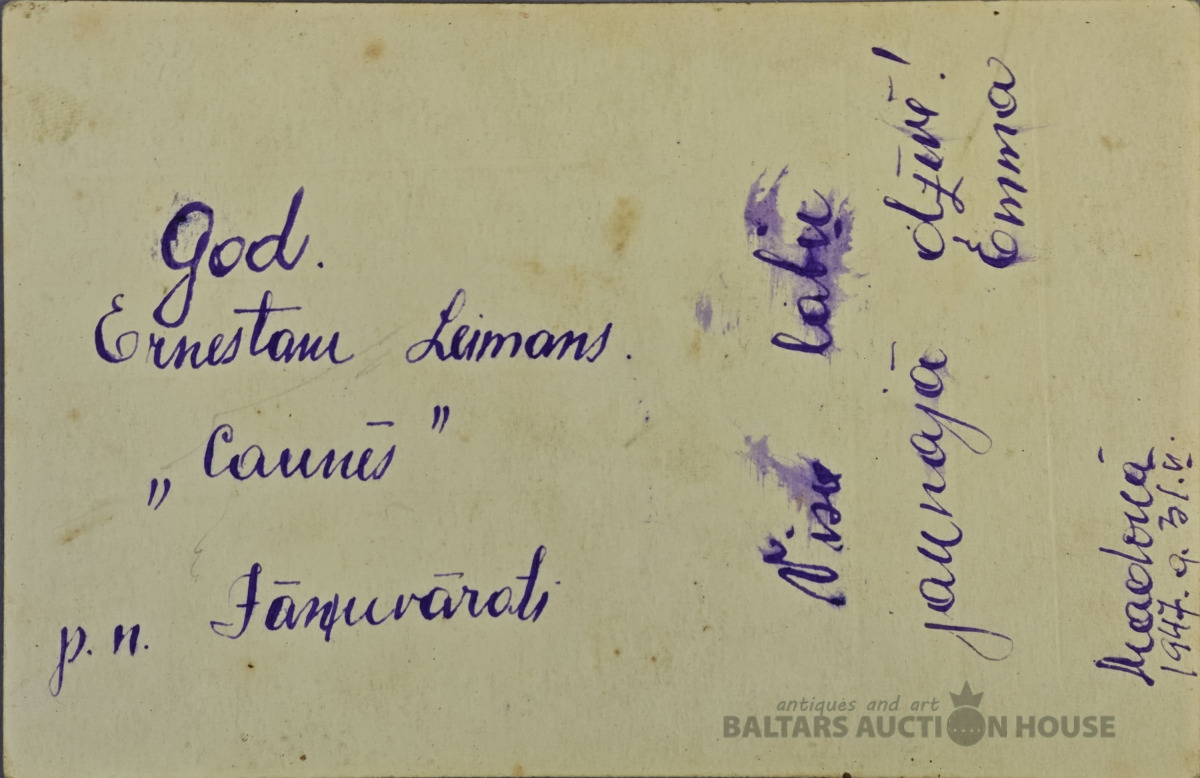 God.
Ernestam Leimans.
„Caunēs"
p. n. Jāņuvārati
Visu labu
jaunajā dzīvē!
Emma
Madonā
1947. g. 31.V.
antiques and art
BALTARS AUCTION HOUSE